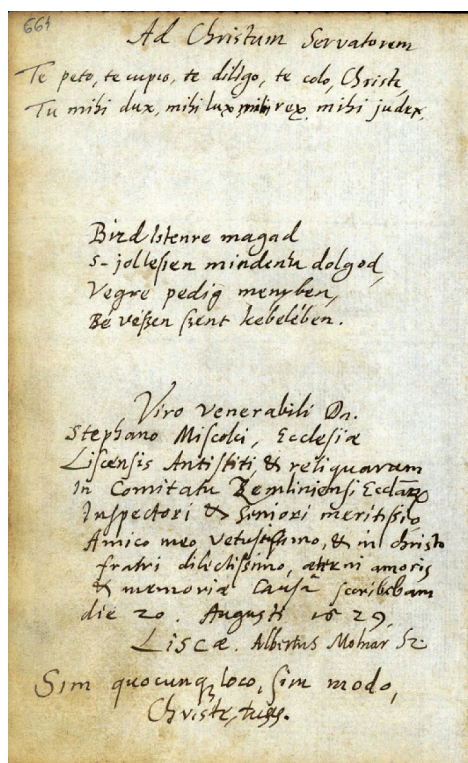 664
Ad Christum Servatorem
Te peto, te cupio, te diligo, te colo, Christe,
Tu mihi dux, mihi lux, mihi rex, mihi judex.
Bizd Istenre magad
s-jolleſzen minden dolgod,
Vegre pedig menyben,
Bé veſzen ſzent kebelében.
Viro venerabili Dn.
Stephano Miſcolci, Eccleſiæ
Liſcenſis Antiſtiti, & reliquarum
in Comitatu Zemliniensi Eccłarꝝ
Inſpectori & Seniori meritiſſ͞o,
Amico meo vetuſtiſſimo, & in Chriſto
fratri dilectiſſimo, æterni amoris
& memoriæ Causâ scribebam
die 20. Auguſti 1629,
Liscæ. Albertus Molnar Sz.
Sim quocunqꝫ loco, ſim modo,
Chriſte, tuus.